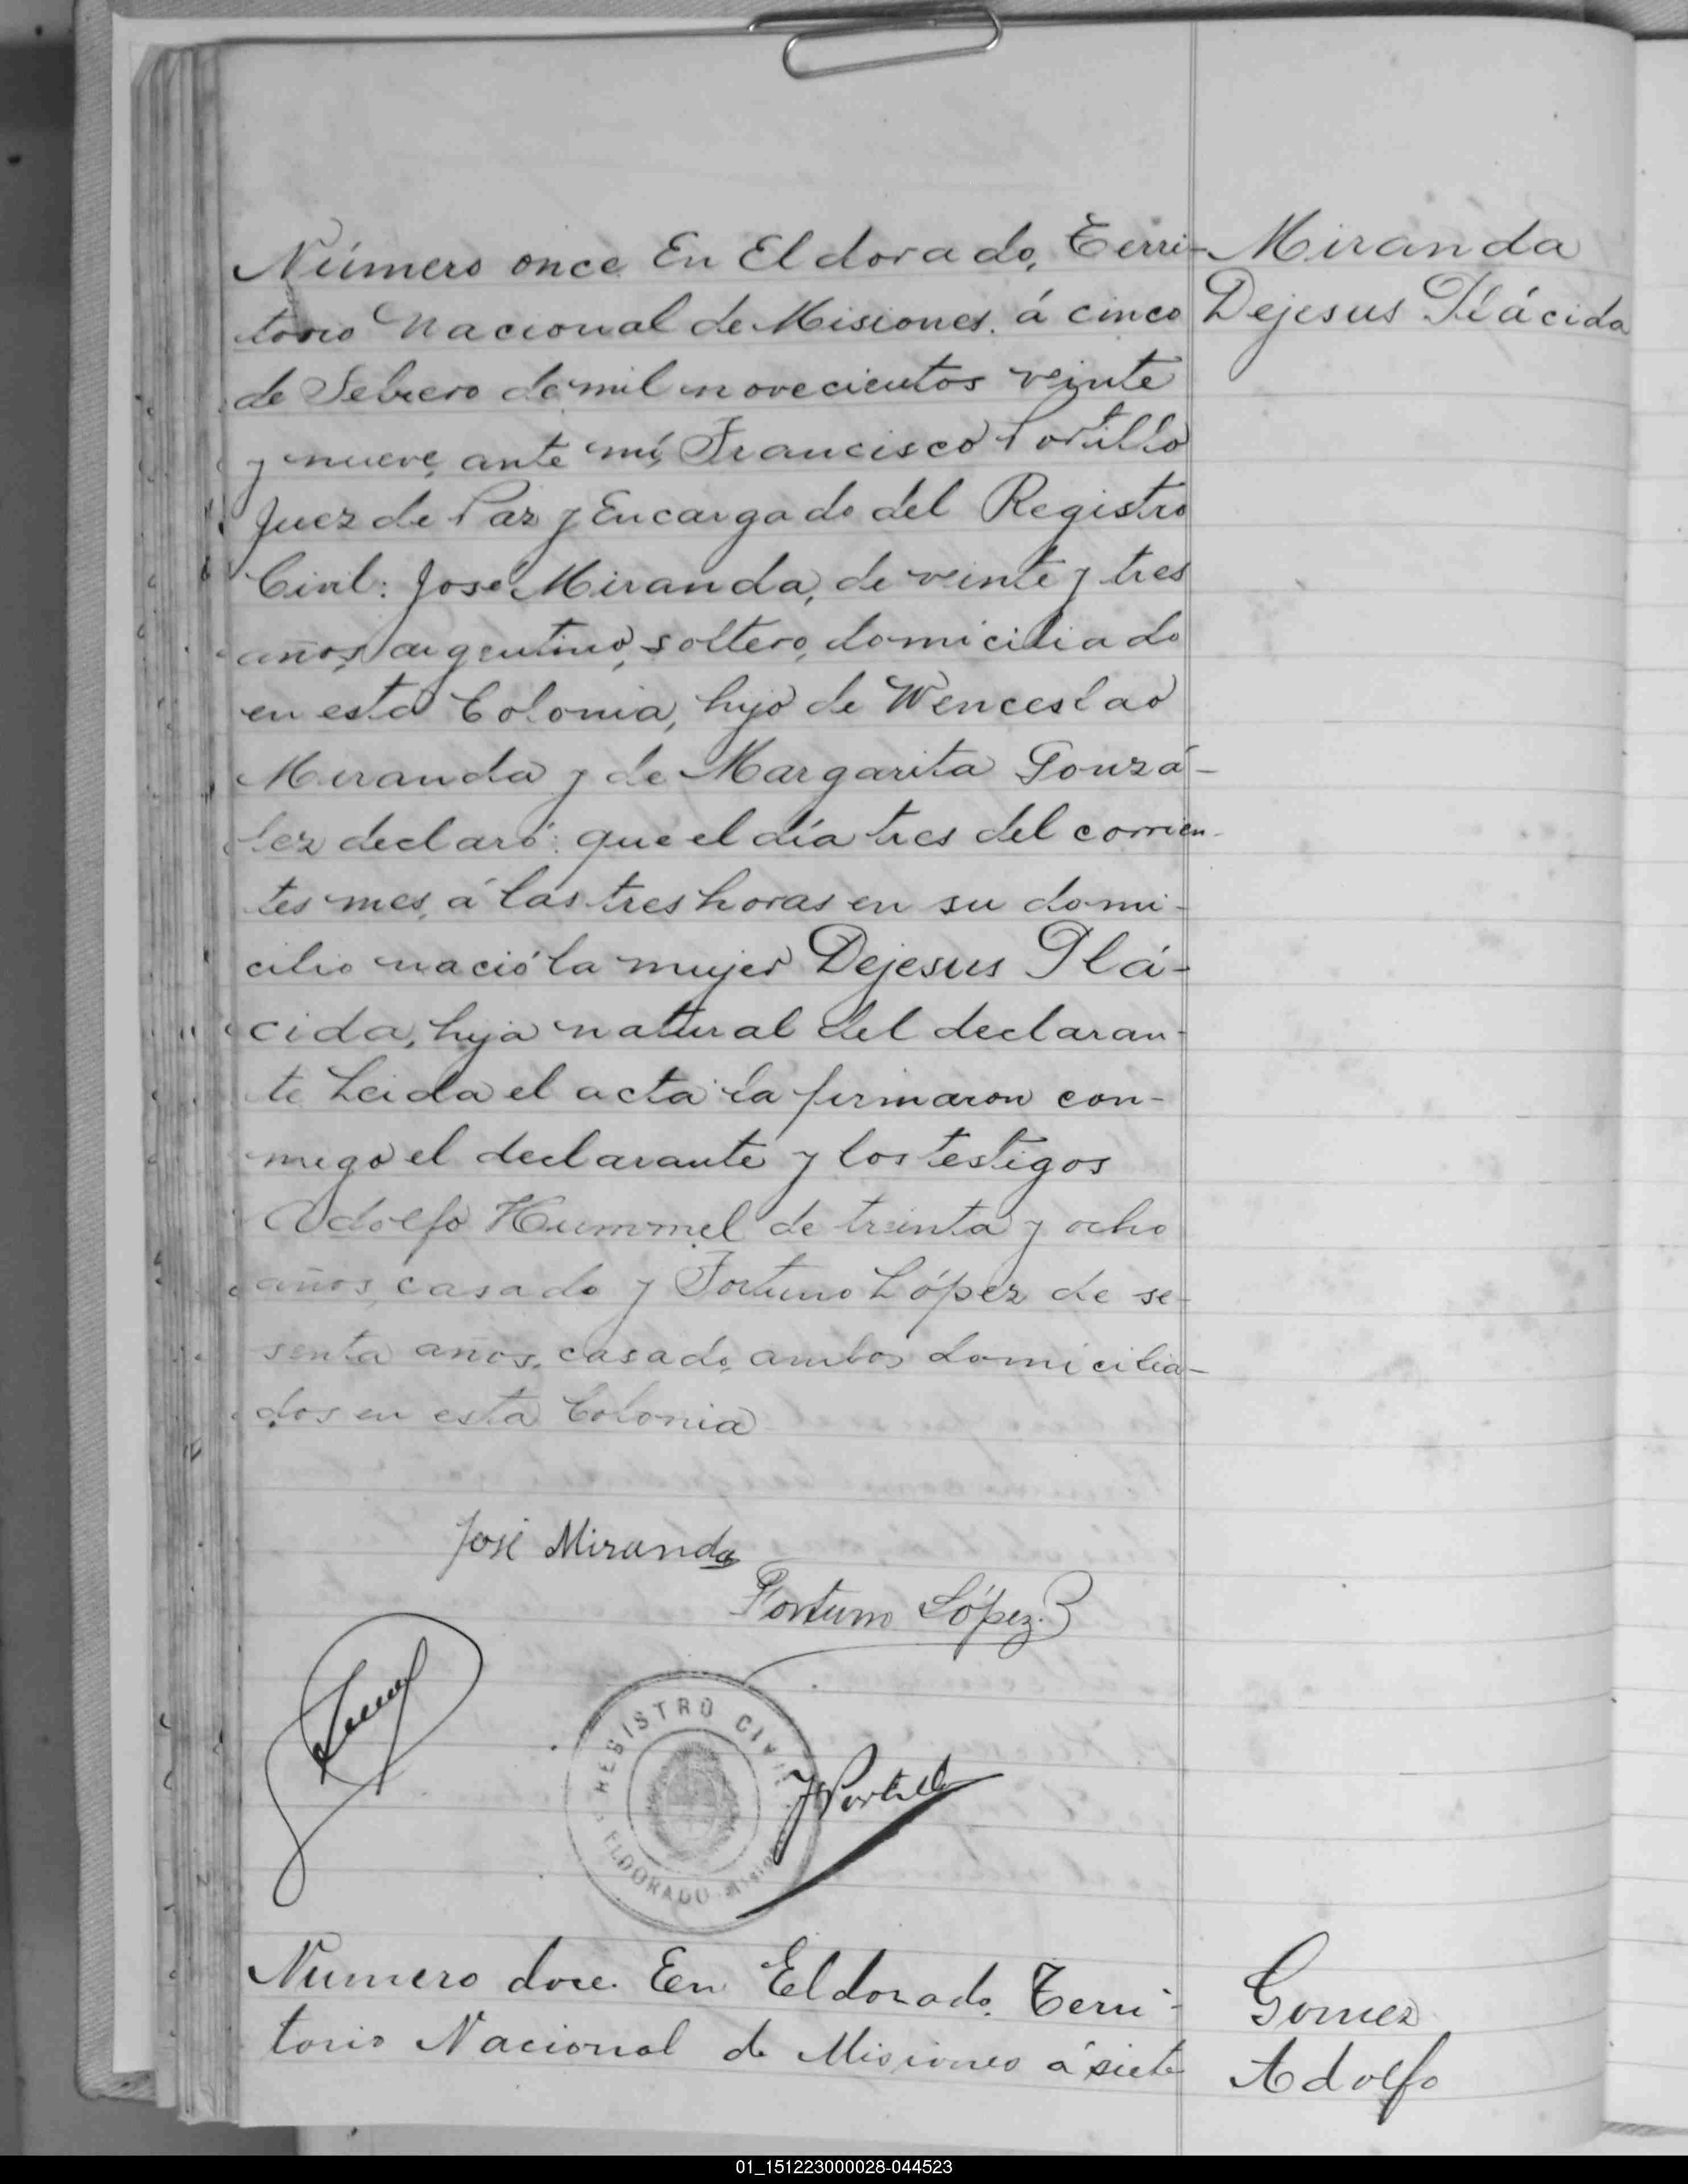 Número once En Eldorado, Terri-
torio Nacional de Misiones. á cinco
de Febrero de mil novecientos veinte
y nueve, ante mí, Francisco Portillo
Juez de Paz y Encargado del Registro
Civil: José Miranda, de veinte y tres
años, argentino, soltero, domiciliado
en esta Colonia, hijo de Wenceslao
Miranda y de Margarita Gonzá-
lez declaró: que el día tres del corrien-
tes mes, á las tres horas en su domi-
cilio nació la mujer Dejesus Plá-
cida, hija natural del declaran-
te Leida el acta la firmaron con-
migo el declarante y los testigos
Adolfo Hummel de treinta y ocho
años, casado y Fortuno López de se-
senta años, casado, ambos domicilia-
dos en esta Colonia
Miranda
Dejesus Plácida
José Miranda
Fortuno López
REGISTRO CIVIL
ELDORADO Misiones
F Portillo
Numero doce. En Eldorado. Terri-
torio Nacional de Misiones á siete
Gomez
Adolfo
01_151223000028-044523